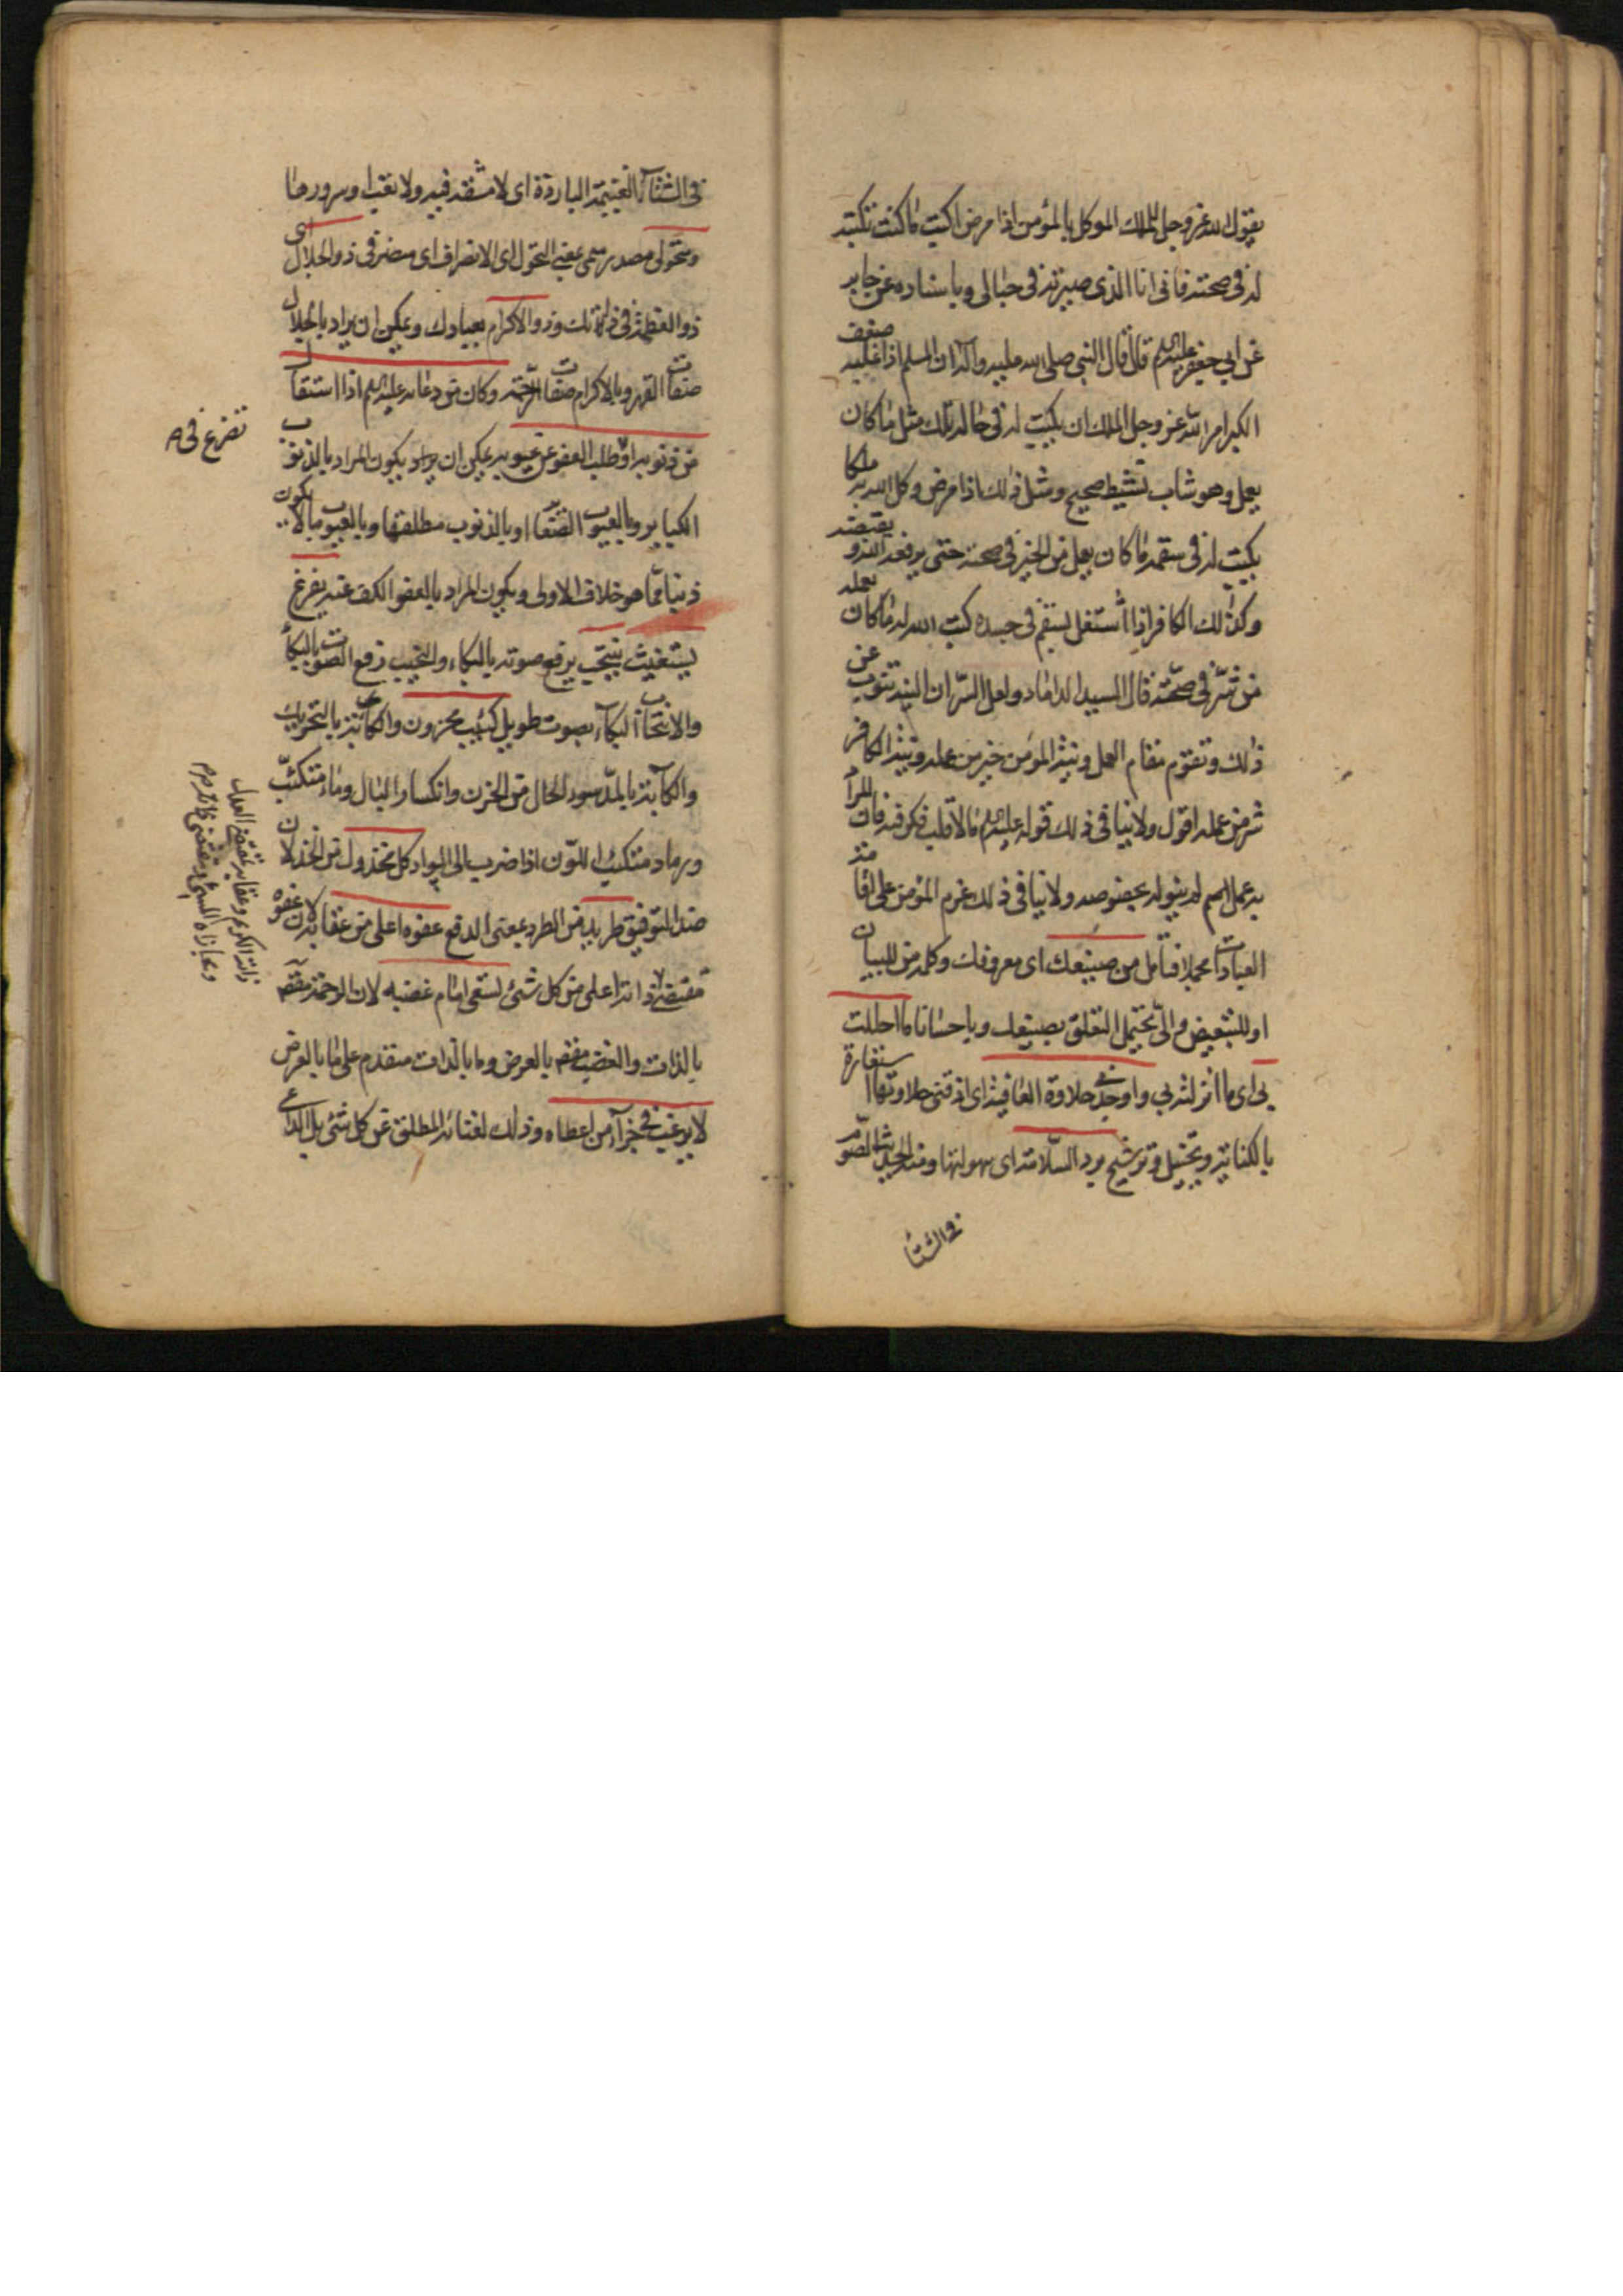 يقول الله عز وجل للملك الموكل بالمؤمن اذا مرض اكتب ما كنت تكتب
له في صحته فاني انا الذي صيرته في حبالي وباسناده عن جابر
عن ابي جعفر عليه السلم قال قال النبي صلى الله عليه وآله ان المسلم اذا غلبه ضعف
الكبر امر الله عز وجل الملك ان يكتب له في حاله تلك مثل ما كان
يعمل وهو شاب نشيط صحيح ومثل ذلك اذا مرض وكل الله به ملكا
يكتب له في سقمه ما كان يعمل من الخير في صحته حتى يرفعه الله و يقبضه
وكذلك الكافر اذا اشتغل بسقم في جسده كتب الله له ما كان يعمله
من شر في صحته قال السيد الداماد ولعل السر ان النية تنوب عن
ذلك وتقوم مقام العمل ونية المؤمن خير من عمله ونية الكافر
شر من عمله اقول ولا ينافي ذلك قوله عليه السلم ما لا قلب فكر فيه فان المراد
به عمل لم ينوله بخصوصه ولا ينافي ذلك عزم المؤمن على منه
العبادات مجملا فتأمل من صنيعك اي معروفك وكلمة من للبيان
او للتبعيض والي يحتمل التعلق بصنيعك وباحسانا ما احللت
بي اي ما انزلته بي واوجدني حلاوة العافية اي اذقني حلاوتها استعارة
بالكناية وتخييل وترشيح برد السلامة اي سهولتها ومنه الحديث الصوم
في الشتا
في الشتاء الغنيمة الباردة اي لا مشقة فيه ولا تعب او سرورها
ومتحولي مصدر ميمي بمعنى التحول اي الانصراف اي منصرفي ذو الجلال اي
ذو العظمة في ذاتك وذو الاكرام بعبادك ويمكن ان يراد بالجلال
صفات القهر وبالاكرام صفات الرحمة وكان من دعائه عليه السلم اذا استقال
من ذنوبه او طلب العفو عن عيوبه يمكن ان يراد يكون المراد بالذنوب
تضرع في
الكباير وبالعيوب الصغاير او بالذنوب مطلقها وبالعيوب ما لا يكون
ذنبا مما هو خلاف الاولى ويكون المراد بالعفو الكف عنه يفزع
يستغيث ينتحب يرفع صوته بالبكاء والنحيب رفع الصوت بالبكاء
والانتحاب البكاء بصوت طويل كئيب محزون والكأبة بالتحريك
والكآبة بالمد سوء الحال من الحزن وانكسار البال وماء متكئب
ورماد متكئب اللون اذا ضرب الى السواد كل مخذول من الخذلان
ضد التوفيق طريد من الطرد بمعنى الدفع عفوه اعلى من عقابه لان عفوه
مقتضى ذاته اعلى من كل شئ تسعى امام غضبه لان الرحمة مقصودة
ذاته الكريم وعقابه مقتضى العدل
بالذات والغضب بالعرض وما بالذات متقدم على ما بالعرض
لا يرغب في جزاء من اعطاه وذلك لغنائه المطلق عن كل شئ بل الداعي